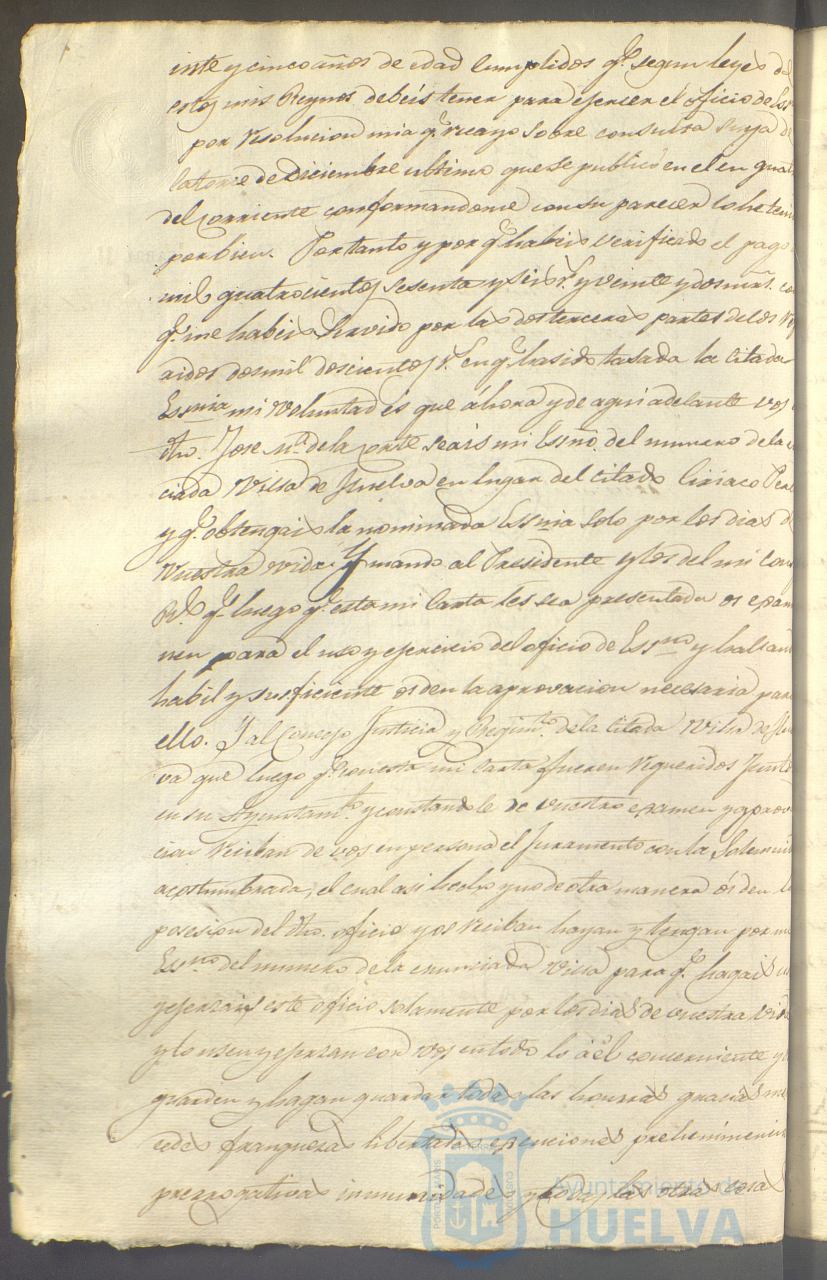 inte y cinco años de edad cumplidos q.e segun leyes d
estos mis Reynos debeis tener para ejercer el oficio de Es
por resolucion mia q.e recayo sobre consulta suya d
catorce de Diciembre ultimo que se publicó en el en quat
del corriente conformandome con su parecer lo he teni
por bien. Por tanto y por q.e habeis verificado el pago
mil quatrocientos sesenta y seis r.s y veinte y dos mrs. co
q.e me habeis servido por las dos terceras partes de los
dos mil doscientos r.s en q.e ha sido tasada la citada
Essnia mi voluntad és que áhora y de aqui adelante vos
dho. Jose M.a de la Corte seais mi Essno. del numero de la
ciada Villa de Huelva en lugar del citado Ciriaco
y q.e obtengais la nominada Essnia solo por los dias d
vuestra vida: Y mando al Presidente y los del mi Con
R.l q.e luego q.e esta mi Carta les sea presentada os exam
nen para el uso y ejercicio del oficio de Essno y hallan
habil y suficiente ós den la aprovacion necesaria para
ello. Y al Concejo Justicia y Regim.to de la citada Villa de Hu
va que luego q.e con esta mi Carta fueren requeridos Junto
en su Ayuntam.to y constandole de vuestro examen y aprov
cion reciban de vos en persona el Juramento con la Solemni
acostumbrada, el cual asi hecho y no de otra manera ós den l
posesion del dho. oficio y os reciban hayan y tengan por mi
Essno del numero de la enunciada Villa para q.e hagais
y ejerzais este oficio solamente por los dias de vuestra vida
y lo usen y ejerzan con vos en todo lo á él concerniente y
guarden y hagan guardar todas las honrras gracias m
cedes franquezas libertades esenciones preheminencias
prerrogativas inmunidades y todas las otras cosas
Ayuntamiento de
HUELVA